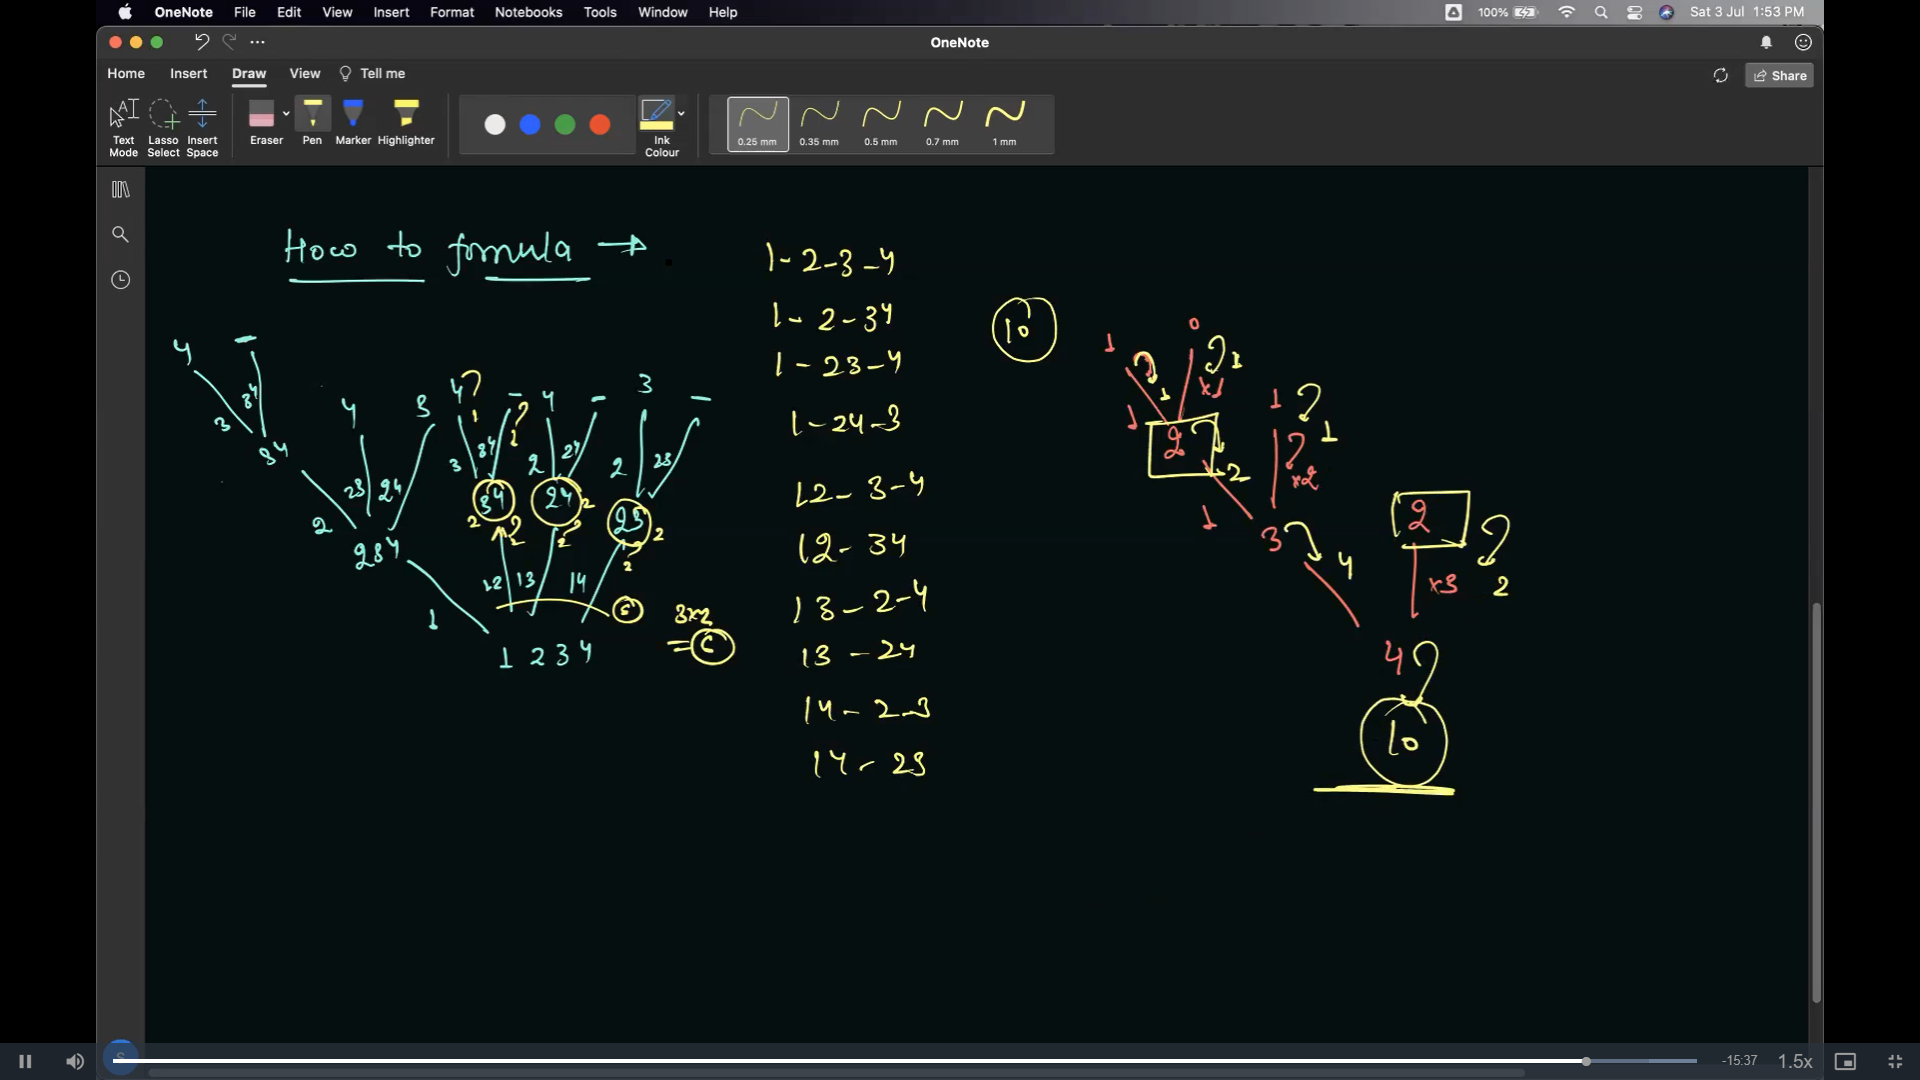 OneNote File Edit View Insert Format Notebooks Tools Window Help 100% Sat 3 Jul 1:53 PM
OneNote
Home Insert Draw View Tell me Share
Text Mode Lasso Select Insert Space Eraser Pen Marker Highlighter Ink Colour 0.25 mm 0.35 mm 0.5 mm 0.7 mm 1 mm
How to formula →
1-2-3-4
1-2-34
1-23-4
1-24-3
12-3-4
12-34
13-2-4
13-24
14-2-3
14-23
10
4 -
3 34
34
4 3
23 24
2
234
1
4 - 4 - 3 -
1 1
3 34 2 24 2 23
34 24 23
2 2 2
2 2 2
12 13 14
6
3x2
=6
1 2 3 4
1 0
1 x1 1
1 2 2
1 1
x2
1 3 4
2
x3 2
4
10
-15:37 1.5x